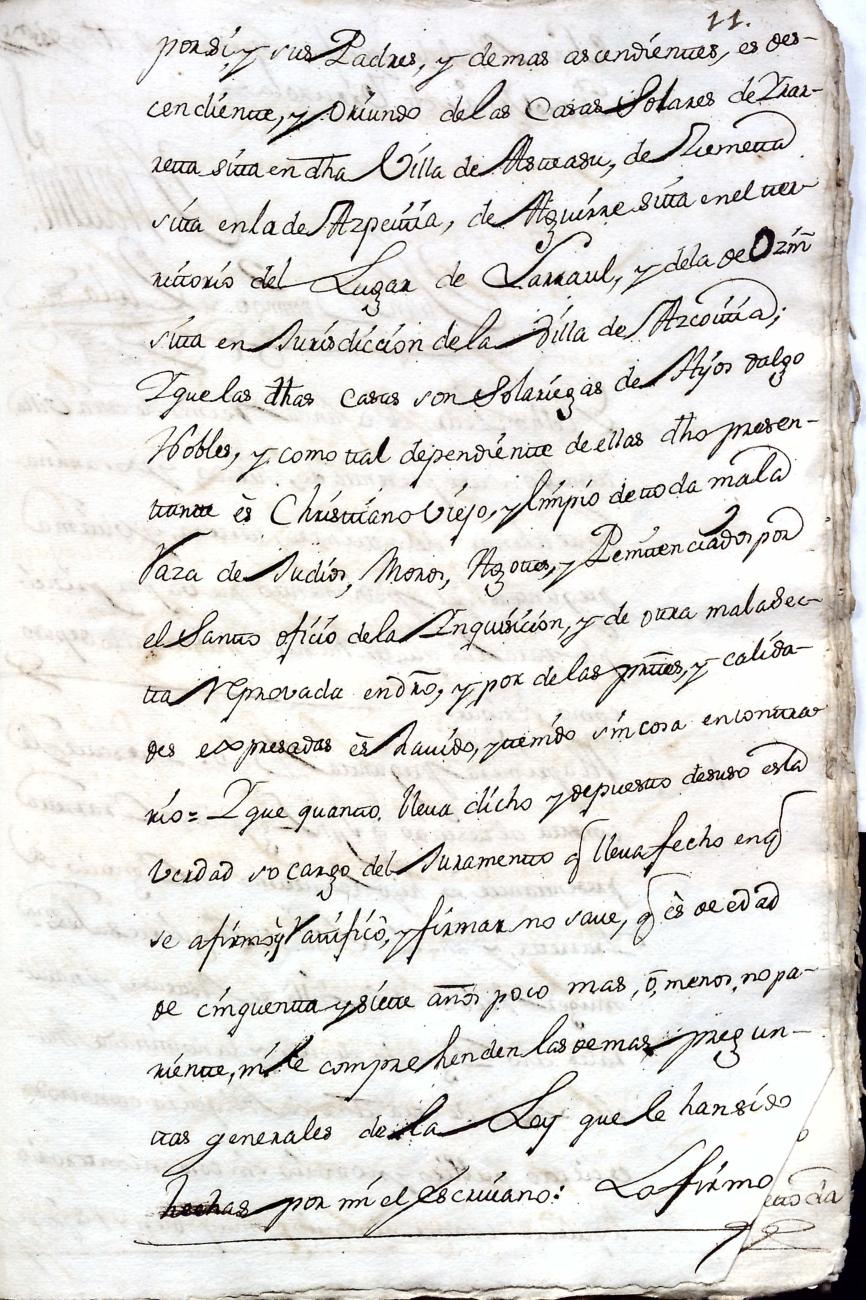 11.
por si, y sus Padres, y demas ascendientes, es des-
cendiente, y oriundo delas Casas Solares de Yrar-
reta sitta en dha Villa de Asteasu, de
sitta enla de Azpeittia, de Aguirre sitta enel ter
rittorio del Lugar de Larraul, y dela de
sitta en Jurisdiccion dela Villa de Azcoittia;
Y que las dhas casas son Solariegas de Hijos dalgo
Nobles, y como tal dependiente de ellas dho presen-
ttante ès Christiano Viejo, y limpio de toda mala
Raza de Judios, Moros, Agotes, y Penitenciados por
el Santto oficio dela Inquisicion, y de otra mala sec-
tta reprovada en dro, y por de las prttes, y calida-
des expresadas ès havido, y tenido sin cosa en contra
rio = Y que quanto lleva dicho y depuesto desuso es la
verdad so cargo del Juramento q lleva fecho en q
se afirmò, y Ratificò, y firmar no save, q ès de edad
de cinquenta y siete años poco mas, ò, menos, no pa-
riente, ni le comprehenden las demas pregun-
ttas generales de la Ley que le han sido
hechas por mi el Escrivano: Lo firmo